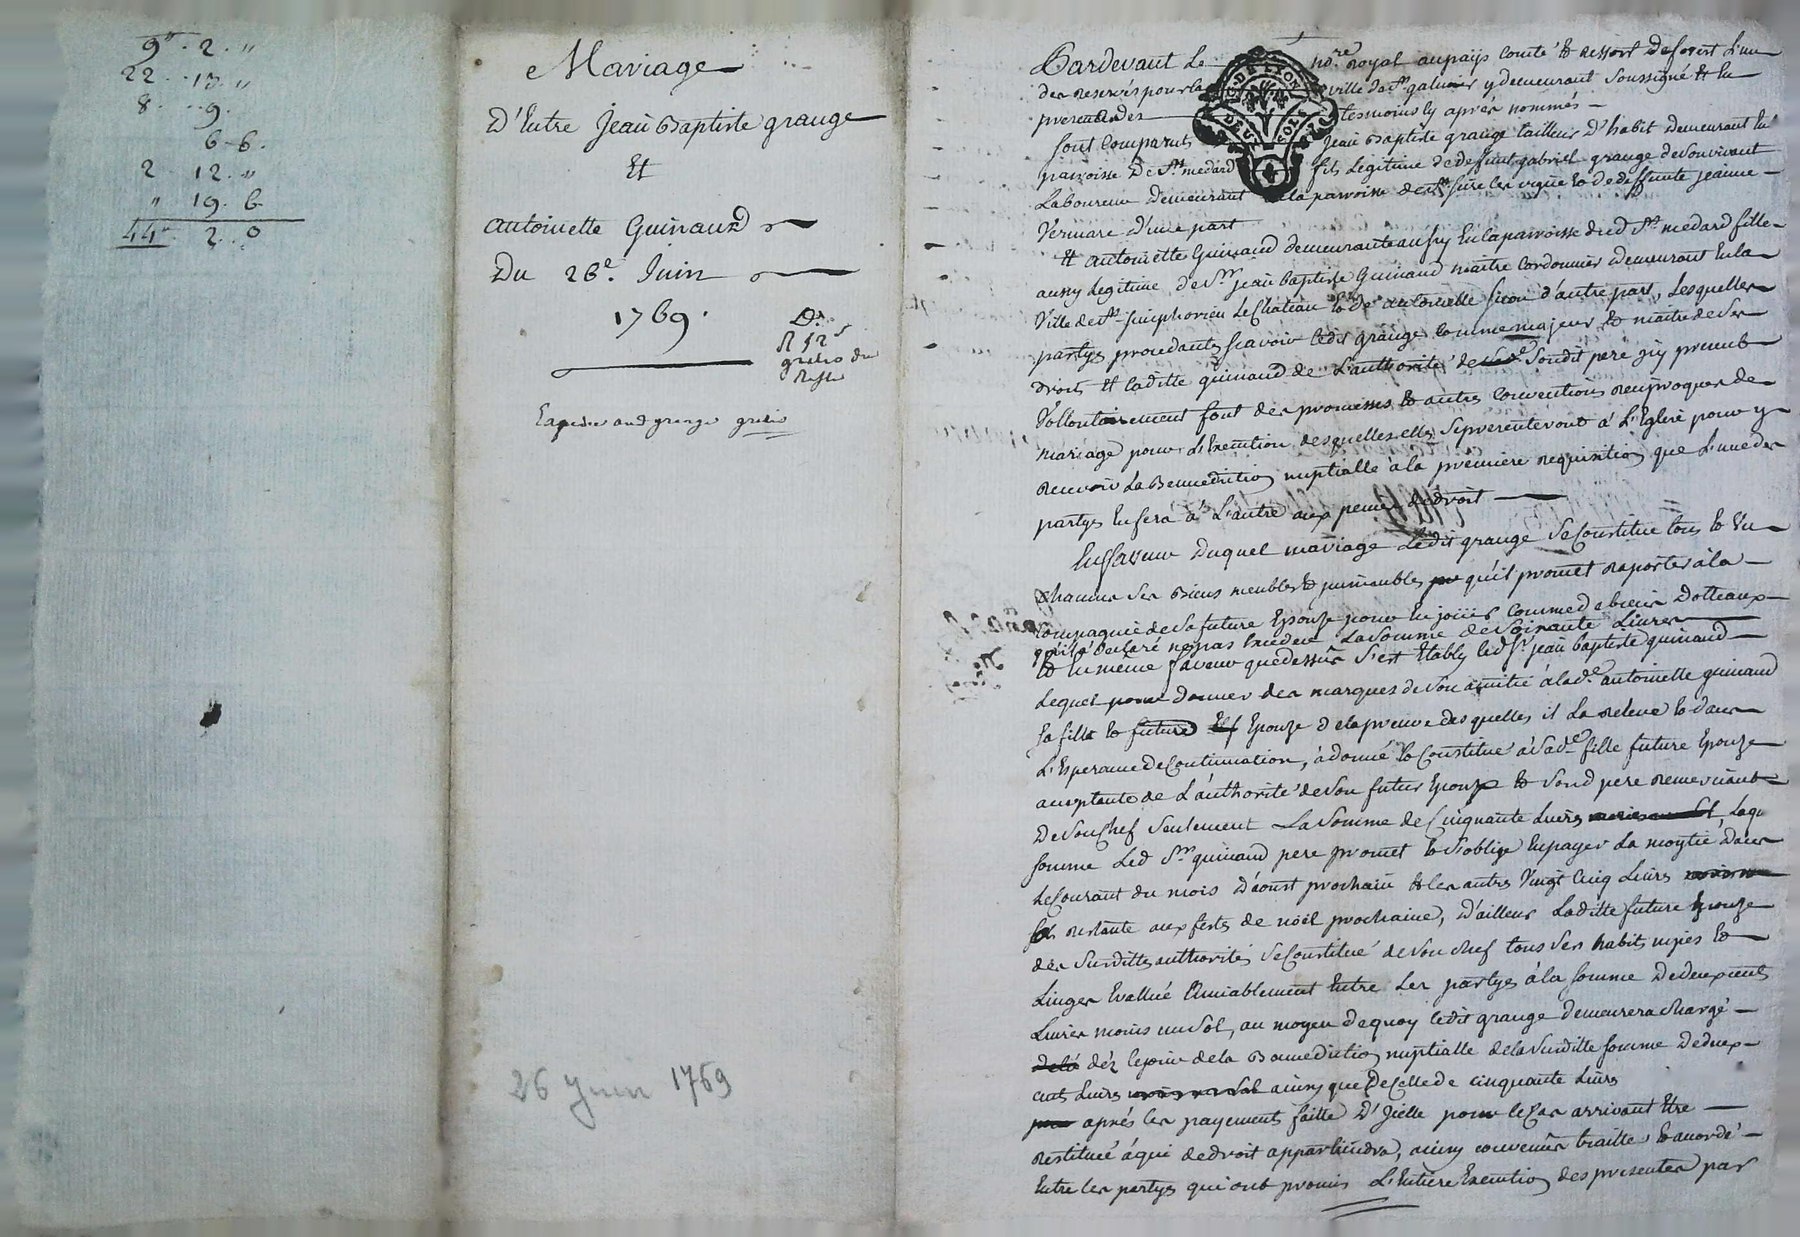 9" . 2 . "
22 . 13 . "
8 . 9 .
6 - 6 .
2 12 . "
" 19 . 6
44" 2 . 0
Mariage
D'Entre Jean Baptiste grange
Et
antoinette Guinaud
Du 26e. Juin
1769.
Expedié aud grange
26 Juin 1769
G. DE LYON
DEUX SOLS
Pardevant Le nore. royal au païs comté & ressort de forest L'un
des reservés pour la ville de St. galmier y demeurant soussigné & en
presence des temoins cy aprés nommés
sont comparuts Jean Baptiste grange tailleur d'habit demeurant en
parroisse De St. medard fils Legitime de defunt gabriel grange de son vivant
Laboureur demeurant la parroisse de & de deffunte jeanne
d'une part
Et antoinette Guinaud demeurante aussy en la parroisse dud St. medard fille
aussy Legitime de Sr. jean baptiste Guinaud maitre Cordonnier demeurant en la
Ville de St. simphorien Le Chateau & de antoinette d'autre part, Lesquelles
partyes procedantes sçavoir ledit grange comme majeur & maitre de ses
droits Et laditte guinaud de L'authorité de sondit pere
Vollontairement font des promesses & autres conventions reciproques de
mariage pour L'Execution desquelles elles se presenteront à L'Eglise pour y
recevoir La Bennediction nuptialle à la premiere requisition que L'une des
partyes en fera à L'autre aux peines de droit
En faveur duquel mariage Ledit grange se Constitue tous & un
chacuns ses biens meubles & jmmeubles qu'il promet raporter à la
compagnie de sa future Epouse pour en joüir comme de biens dotteaux
qu'il a declaré ne pas Exceder La somme de soixante Livres
& en même faveur que dessus s'est Etably led Sr. jean baptiste guinaud
Lequel pour donner des marques de son amitié à lade. antoinette guinaud
sa fille & future Epouze de la preuve desquelles il La releve & dans
L'Esperance de Continuation, à donné & Constitué à sade. fille future Epouze
acceptante de L'authorité de son futur Epoux & sond pere remerciant
De son Chef seulement La somme de Cinquante Livres
somme Led Sr. guinaud pere promet & s'oblige en payer La moytié dans
Le Courant du mois d'aoust prochain & les autres Vingt Cinq Livres
restante aux fests de noël prochaine, D'ailleur Laditte future Epouze
des susdittes authorités se Constitue de son chef tous ses habits nipes &
Linges Evallué Amiablement Entre Les partyes à la somme de deux cents
Livres moins un sol, au moyen de quoy ledit grange demeurera chargé
dés le jour de la Bennediction nuptialle de la susditte somme de deux
cents Livres ainsy que de celle de cinquante Livres
aprés les payements faitte D'Jcelle pour le Cas arrivant Etre
restitué à qui de droit appartiendra, ainsy convenus traitté & accordé
Entre les partyes qui ont promis L'Entiere Execution des presentes par